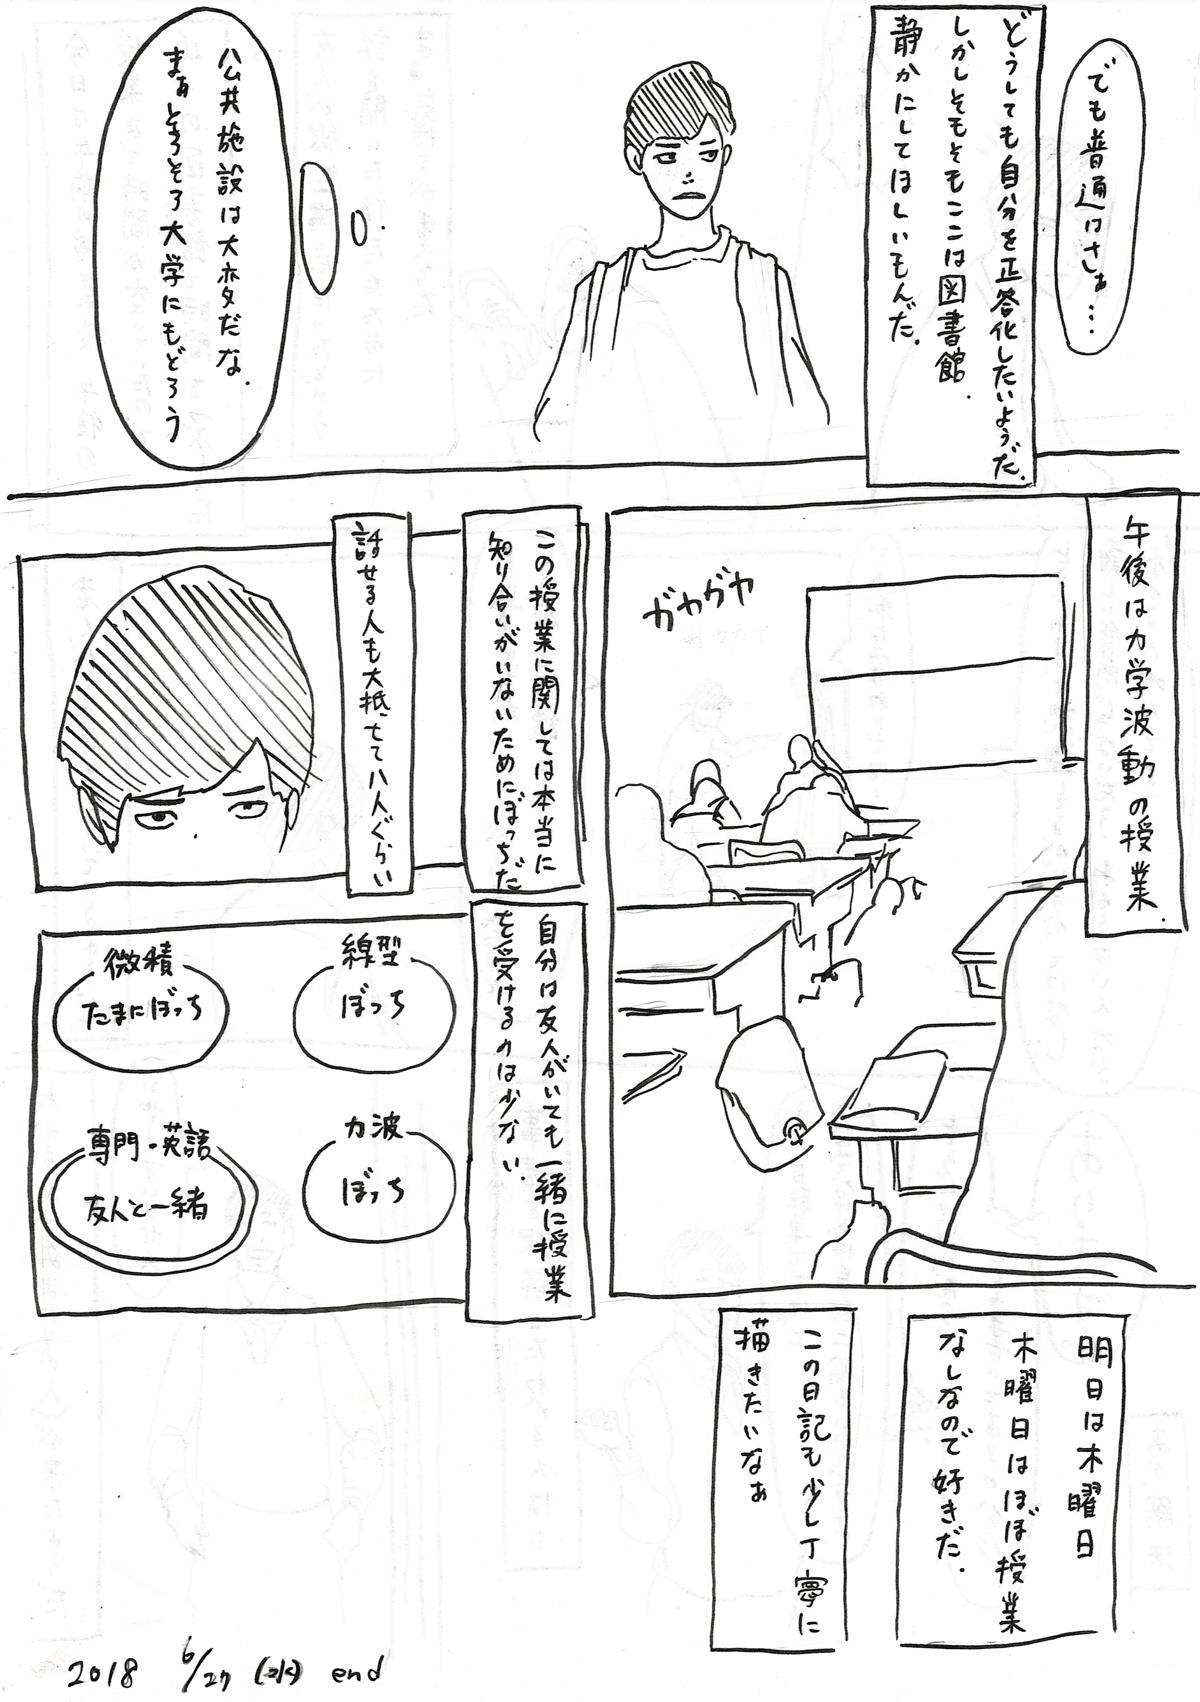 でも普通はさぁ…
どうしても自分を正答化したいようだ.
しかしそもそもここは図書館.
静かにしてほしいもんだ.
公共施設は大ホタだな.
まぁところそろ大学にもどろう
午後は力学波動の授業.
ガヤガヤ
この授業に関しては本当に
知り合いがいないためにぼっちだ
話せる人も大抵
八人ぐらい
自分は友人がいても一緒に授業
を受けるのは少ない.
線型
ぼっち
微積
たまにぼっち
力波
ぼっち
専門・英語
友人と一緒
明日は木曜日
木曜日はほぼ授業
なしなので好きだ.
この日記も少し丁寧に
描きたいなぁ
2018 6/27 (水) end